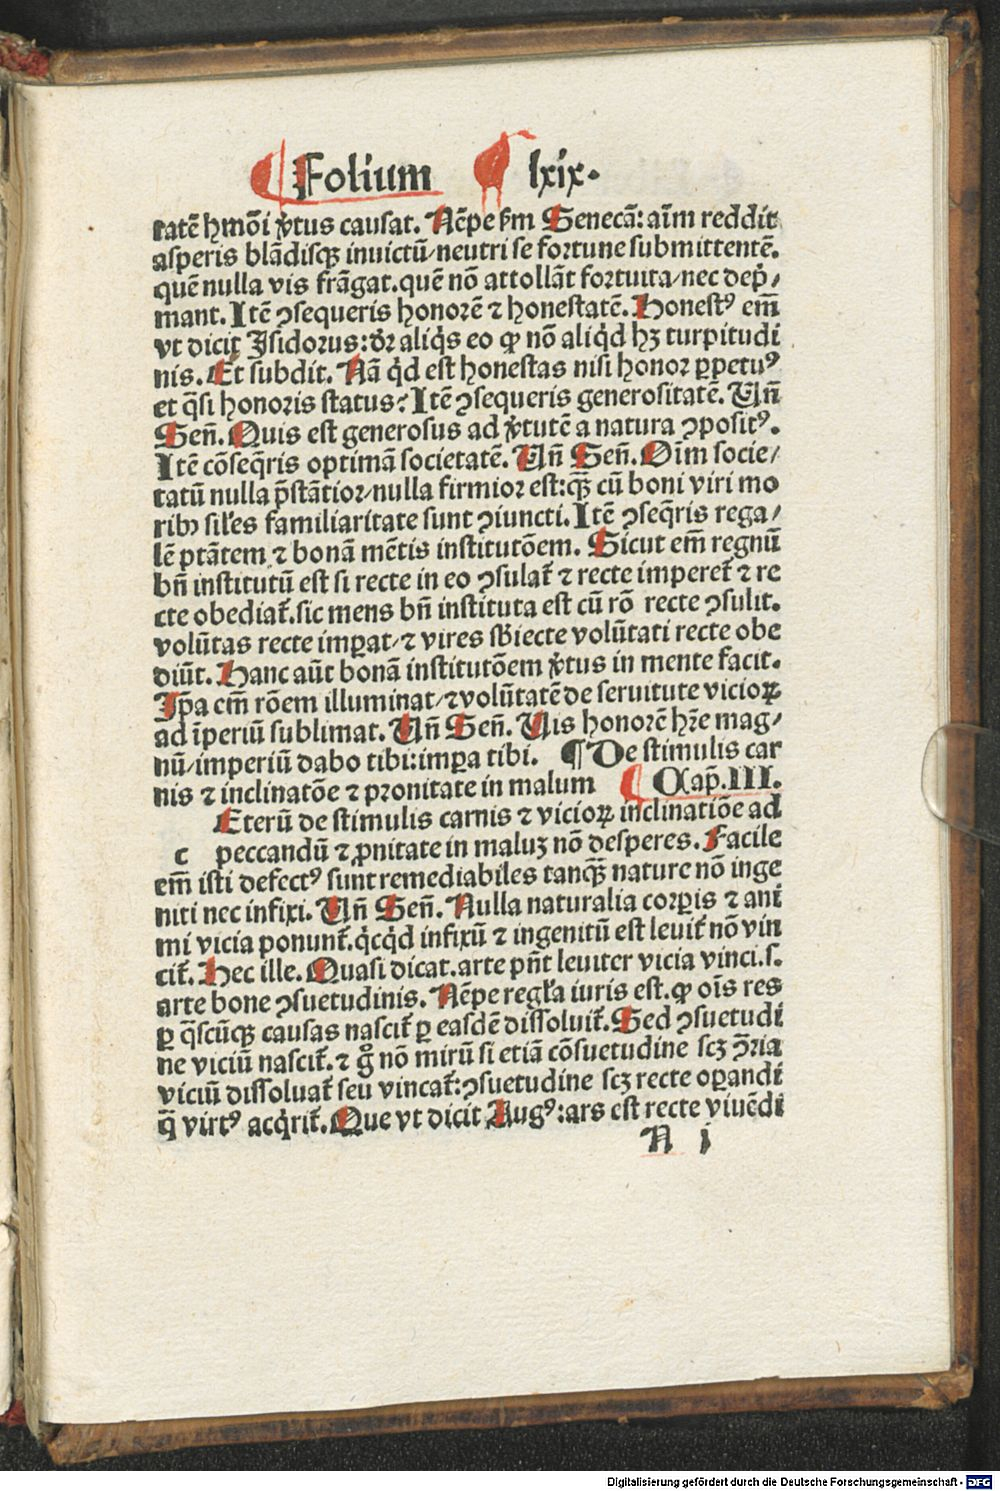 Folium lxix.
tatē hmōi v̓tus causat. Nēpe ẜm Senecā: aīm reddit
asperis blādisqꝫ inuictū/neutri se fortune submittentē.
quē nulla vis frāgat.quē nō attollāt fortuita/nec dep̄/
mant. Itē ꝯsequeris honorē ⁊ honestatē. Honestꝰ em̄
vt dicit Jsidorus: dr̄ aliq̇s eo ꝙ nō aliq̇d hꝫ turpitudi
nis. Et subdit. Nā q̇d est honestas nisi honor ꝑpetuꝰ
et q̄si honoris status? Itē ꝯsequeris generositatē. Un̄
Sen̄. Quis est generosus ad v̓tutē a natura ꝯpositꝰ.
Itē cōseq̄ris optimā societatē. Un̄ Sen̄. Oīm socie/
tatū nulla p̄stātior/nulla firmior est: qꝫ̄ cū boni viri mo
ribꝫ siles familiaritate sunt ꝯiuncti. Itē ꝯseq̄ris rega/
lē ptātem ⁊ bonā mētis institutōem. Sicut em̄ regnū
bn̄ institutū est si recte in eo ꝯsulat̄ ⁊ recte imperet̄ ⁊ re
cte obediat̄.sic mens bn̄ instituta est cū rō recte ꝯsulit.
volūtas recte imꝑat/⁊ vires sb̄iecte volūtati recte obe
diūt. Hanc aūt bonā institutōem v̓tus in mente facit.
Jp̄a em̄ rōem illuminat/⁊ volūtatē de seruitute vicioꝝ
ad īperiū sublimat. Un̄ Sen̄. Uis honorē hr̄e mag/
nū/imperiū dabo tibi: imꝑa tibi. ¶ De stimulis car
nis ⁊ inclinatōe ⁊ pronitate in malum ¶ Cap̄. III.
Eterū de stimulis carnis ⁊ vicioꝝ inclinatiōe ad
c peccandū ⁊ ꝓnitate in maluꝫ nō desperes. Facile
em̄ isti defectꝰ sunt remediabiles tanqꝫ̄ nature nō inge
niti nec infixi. Un̄ Sen̄. Nulla naturalia corꝑis ⁊ ani
mi vicia ponunt̄.q̇cq̇d infixū ⁊ ingenitū est leuit̄ nō vin
cit̄. Hec ille. Quasi dicat.arte pn̄t leuiter vicia vinci.s.
arte bone ꝯsuetudinis. Nēpe regl̄a iuris est.ꝙ oīs res
ꝑ q̄scūqꝫ causas nascit̄ ꝑ easdē dissoluit̄. Sed ꝯsuetudi
ne viciū nascit̄.⁊ gͦ nō mirū si etiā cōsuetudine scꝫ ꝯ̄ria
viciū dissoluat̄ seu vincat̄: ꝯsuetudine scꝫ recte oꝑandi
q̄ virtꝰ acq̇rit̄. Que vt dicit Augꝰ: ars est recte viuēdi
N j
Digitalisierung gefördert durch die Deutsche Forschungsgemeinschaft - DFG